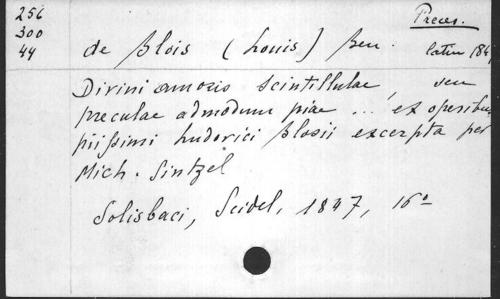 256
300
44
Preces.
de Blois (Louis) Ben. latin 184
Divini amoris scintillulae, seu
preculae admodum piae ... ex operibus
piissimi Ludovici Blosii excerpta per
Mich. Sintzel
Solisbaci, Seidel, 1847, 16°